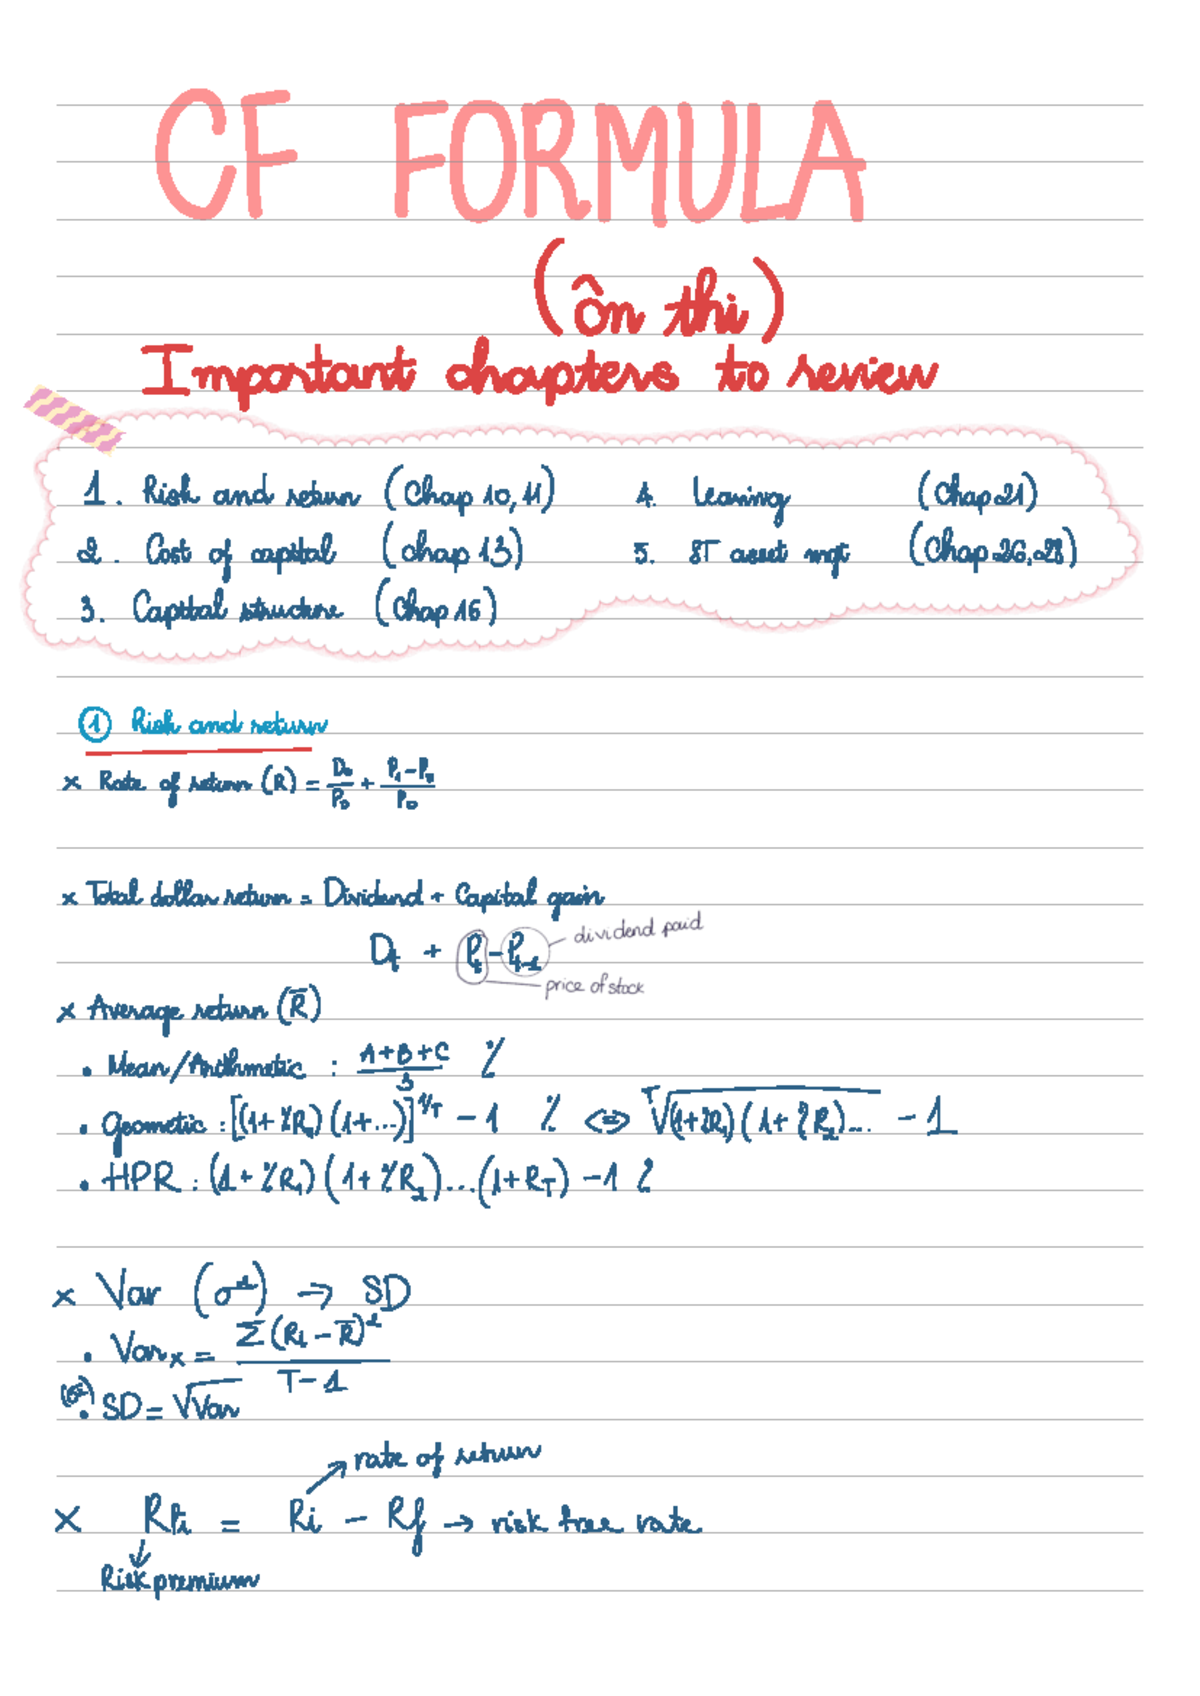 CF FORMULA
(ôn thi)
Important chapters to review
1. Risk and return (Chap 10, 11)
2. Cost of capital (chap 13)
3. Capital structure (Chap 16)
4. Leasing (Chap 21)
5. ST asset mgt (Chap 26, 28)
① Risk and return
× Rate of return (R) = D₀/P₀ + (P₁ - P₀)/P₀
× Total dollar return = Dividend + Capital gain
Dt + Pt - Pt-1
dividend paid
price of stock
× Average return (R̄)
• Mean/Arithmetic : (A+B+C)/3 %
• Geometic : [(1+%R₁)(1+...)]^1/T - 1 % ⇔ ᵀ√(1+%R₁)(1+%R₂)... - 1
• HPR : (1+%R₁)(1+%R₂)...(1+R_T) - 1 %
× Var (σ²) → SD
• Varₓ = Σ(Ri - R̄)² / T-1
• SD = √Var
rate of return
× RPi = Ri - Rf → risk free rate
Risk premium